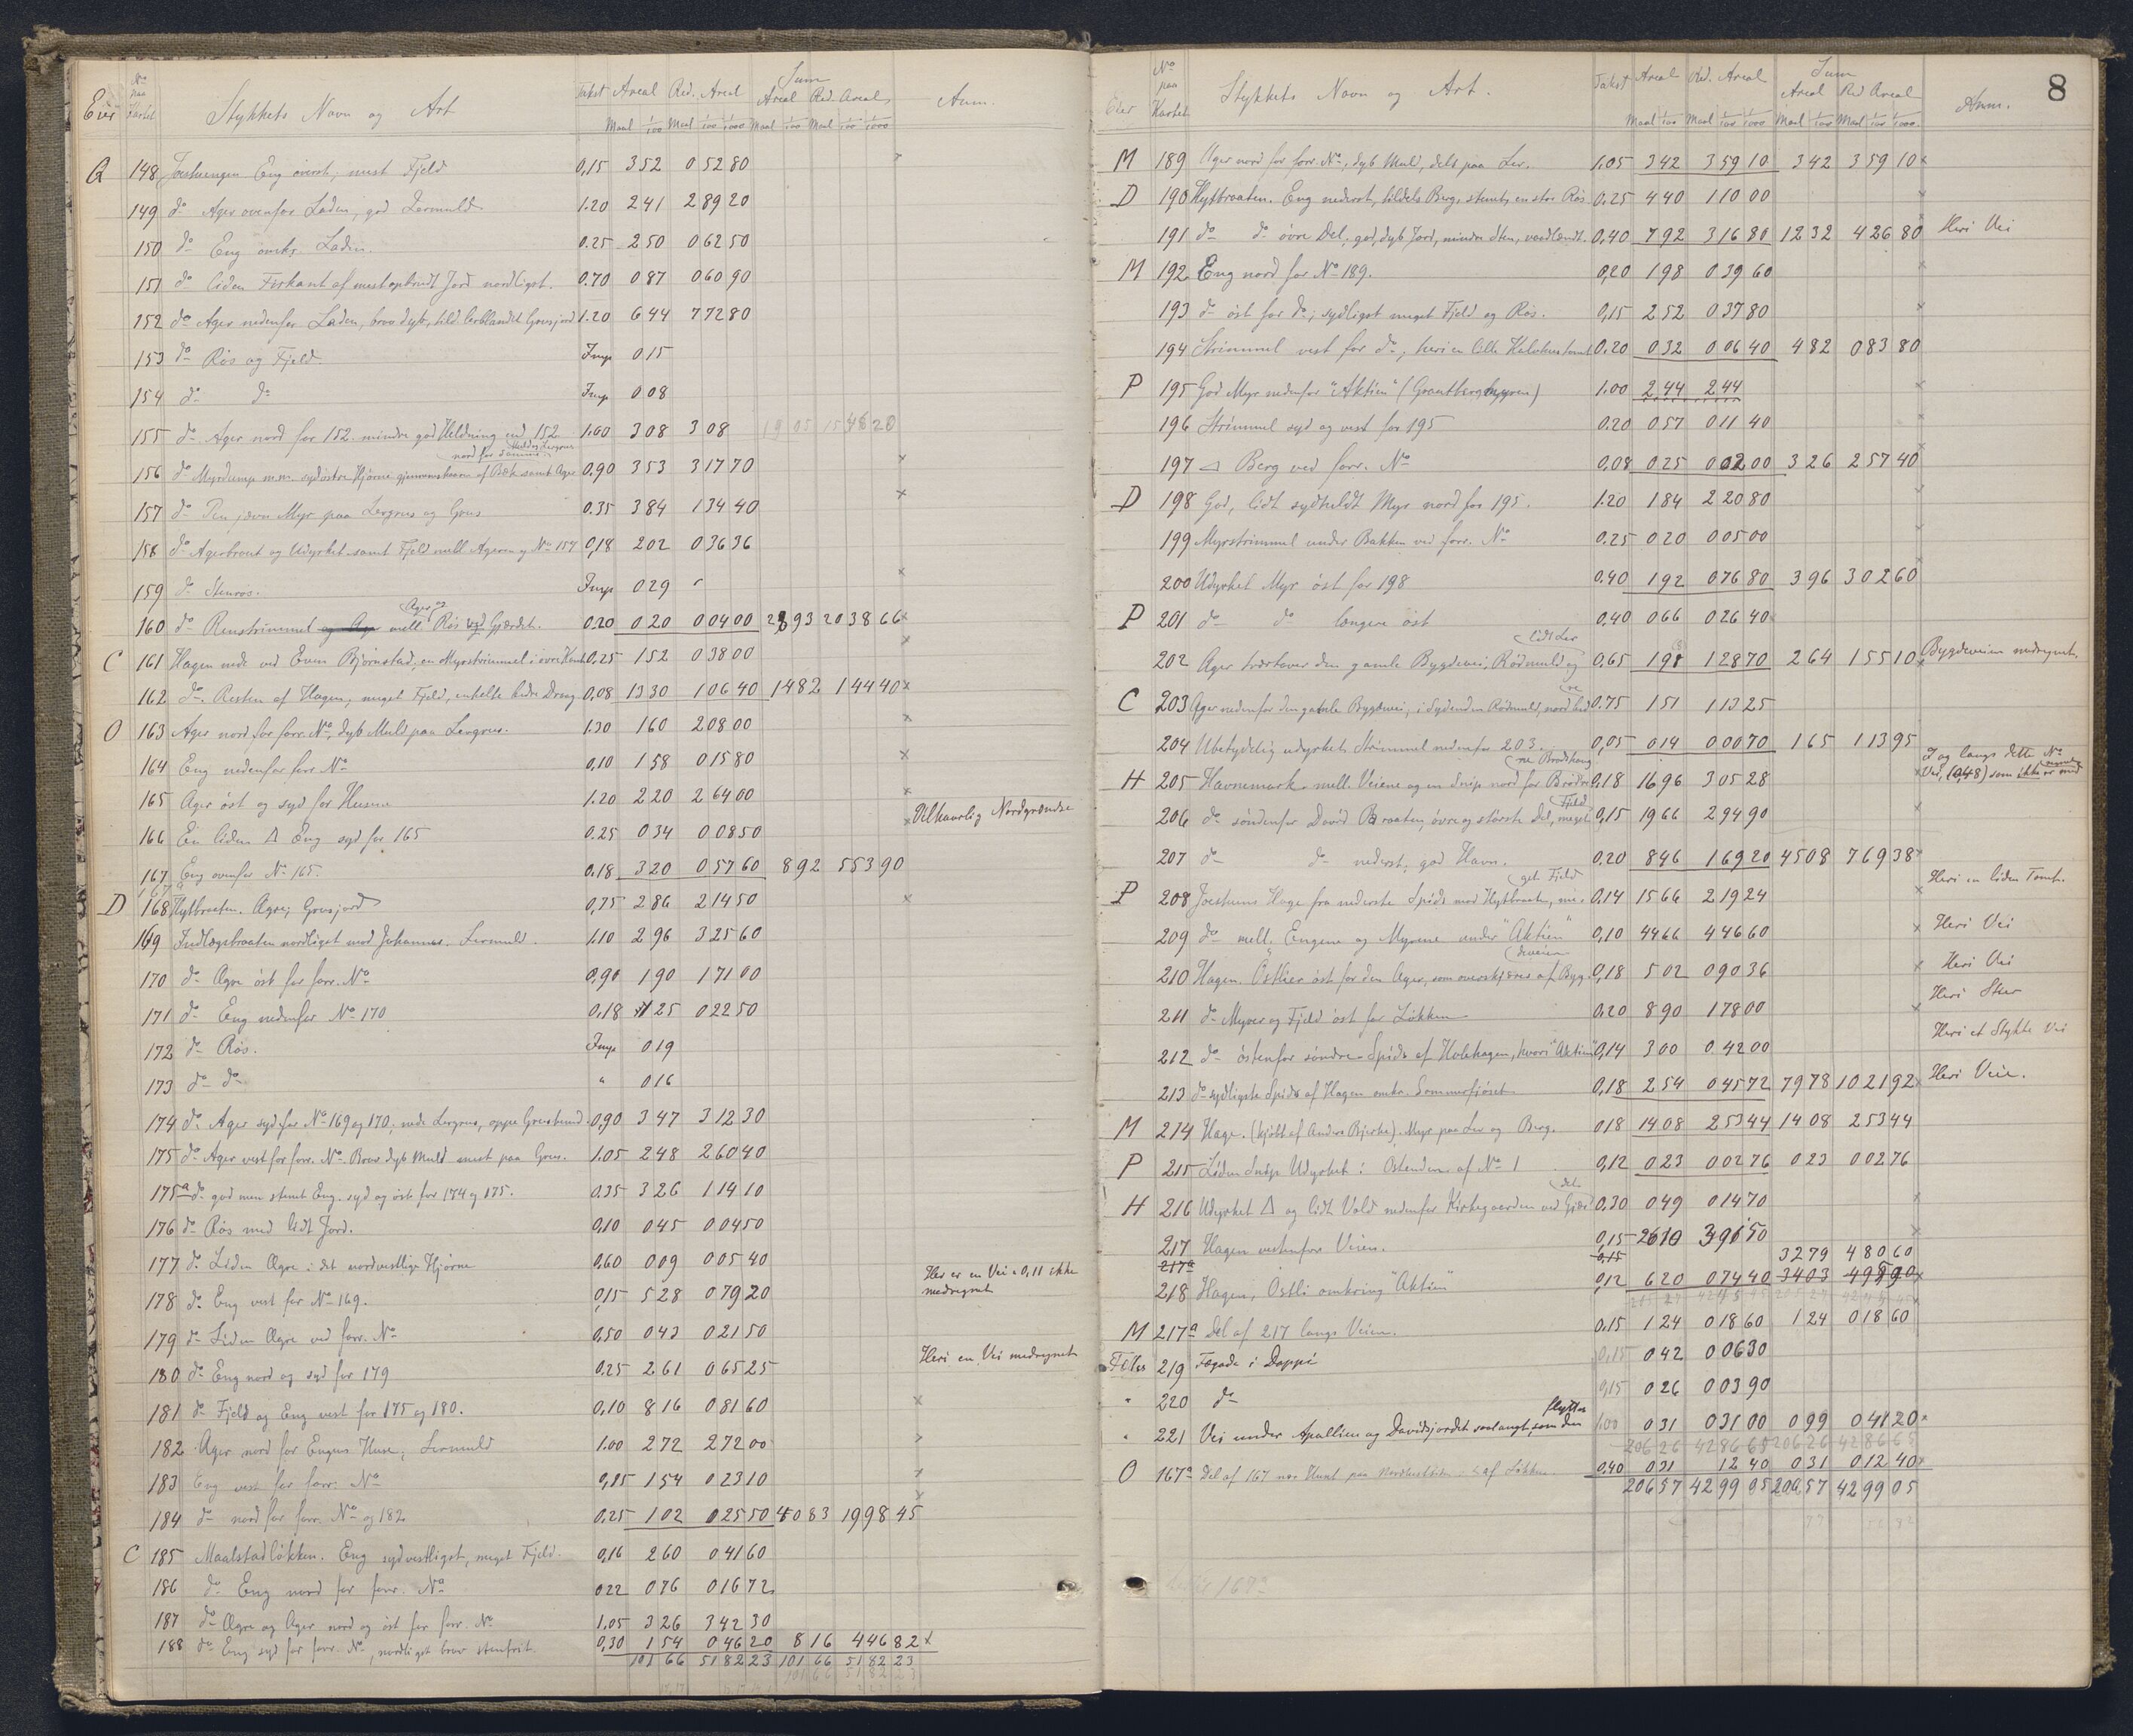 Eier No paa Kartet Stykkets Navn og Art Takst Areal Red. Areal Sum Areal Red. Areal Anm.
Maal 1/100 Maal 1/100 1/1000 Maal 1/100 Maal 1/100 1/1000
Q 148 Eng överst, mest Fjeld 0,15 3 52 0 52 80
149 do Ager ovenfor Laden, god Lermuld 1.20 2 41 2 89 20
150 do Eng omkr. Laden. 0.25 2 50 0 62 50
151 do liden Firkant af mest opbrudt Jord nordligst. 0.70 0 87 0 60 90
152 do Ager nedenfor Laden, brav dyb, tild. lerblandet Grusjord 1.20 6 44 7 72 80
153 do Rös og Fjeld Imp 0 15
154 do do Imp 0 08
155 do Ager nord for 152 mindre god Heldning end 152 1.00 3 08 3 08 19 05 15 46 20
156 do m.m. sydöstre Hjörne af Bæk samt Ager nord for samme 0,90 3 53 3 17 70
157 do Myr paa Lergrus og Grus 0.35 3 84 1 34 40
158 do Agerbrout og Udyrket samt Fjeld mell Ageren og No 157 0,18 2 02 0 36 36
159 do Stenrös. Imp 0 29
160 do Renstrimmel mell Ager og Rös ved Gjærdet. 0.20 0 20 0 04 00 28 93 20 38 66 x
C 161 Hagen nede ved Even Björnstad, en Myrstrimmel i övre Kant 0.25 1 52 0 38 00
162 do Resten af Hagen, meget Fjeld, enkelte bedre Drag 0,08 13 30 1 06 40 14 82 1 44 40 x
O 163 Ager nord for forr. No, dyb Muld paa Lergrus. 1.30 1 60 2 08 00 x
164 Eng nedenfor forr No 0,10 1 58 0 15 80 x
165 Ager öst og syd for Husene 1.20 2 20 2 64 00 x
166 En liden Δ Eng syd for 165 0.25 0 34 0 08 50 x Vilkaarlig Nordgrændse
167 Eng ovenfor No 165. 0.18 3 20 0 57 60 8 92 5 53 90
D 168 Hytbraaten. Agre; Grusjord 0,75 2 86 2 14 50 x
169 Indlægsbraaten nordligst mod Johannes. Lermuld. 1.10 2 96 3 25 60
170 do Agre öst for forr. No 0,90 1 90 1 71 00
171 do Eng nedenfor No 170 0,18 1 25 0 22 50
172 do Rös. Imp 0 19
173 do do " 0 16
174 do Ager syd for No 169 og 170, nede Lergrus, oppe Grusbund. 0,90 3 47 3 12 30
175 do Ager vest for forr. No. Brav dyb Muld mest paa Grus. 1.05 2 48 2 60 40
175a do god men stenet Eng. syd og öst for 174 og 175. 0.35 3 26 1 14 10
176 do Rös med lidt Jord. 0,10 0 45 0 04 50
177 do Liden Agre i det nordvestlige Hjörne 0,60 0 09 0 05 40
178 do Eng vest for No 169. 0,15 5 28 0 79 20 Her er en Vei = 0,11 ikke medregnet
179 do Liden Agre ved forr. No 0,50 0 43 0 21 50
180 do Eng nord og syd for 179 0.25 2 61 0 65 25 Heri en Vei medregnet
181 do Fjeld og Eng vest for 175 og 180. 0,10 8 16 0 81 60 x
182 Ager nord for Huse; Lermuld 1.00 2 72 2 72 00
183 Eng vest for forr. No 0,15 1 54 0 23 10 x
184 do nord for forr. No og 182. 0.25 1 02 0 25 50 40 83 19 98 45 x
C 185 Maalstadlökken. Eng sydvestligst, meget Fjeld. 0,16 2 60 0 41 60
186 do Eng nord for forr. No 0 22 0 76 0 16 72
187 do Agre og Ager nord og öst for forr. No 1.05 3 26 3 42 30
188 do Eng syd for forr. No, nordligst brav stenfrit. 0,30 1 54 0 46 20 8 16 4 46 82 x
101 66 51 82 23 101 66 51 82 23
101 66 51 82 23
8
Eier No paa Kartet Stykkets Navn og Art. Takst Areal Red. Areal Sum Areal Red Areal Anm.
Maal 1/100 Maal 1/100 1/1000 Maal 1/100 Maal 1/100 1/1000
M 189 Ager nord for forr. No, dyb Muld, dels paa Ler. 1.05 3 42 3 59 10 3 42 3 59 10 x
D 190 Hytbraaten. Eng nederst, tildels Berg, stenet, en stor Rös 0.25 4 40 1 10 00 x
191 do do övre Del. god, dyb Jord, mindre sten, vandlændt. 0,40 7 92 3 16 80 12 32 4 26 80 Heri Vei
M 192 Eng nord for No 189. 0,20 1 98 0 39 60 x
193 do öst for do; sydligst meget Fjeld og Rös. 0,15 2 52 0 37 80 x
194 Strimmel vest for do; heri en lille 0.20 0 32 0 06 40 4 82 0 83 80
P 195 God Myr nedenfor "Aktien" (Grantbergmyren) 1.00 2 44 2 44 x
196 Strimmel syd og vest for 195 0.20 0 57 0 11 40 x
197 Δ Berg ved forr. No 0,08 0 25 0 02 00 3 26 2 57 40 x
D 198 God, lidt sydheldt Myr nord for 195. 1.20 1 84 2 20 80
199 Myrstrimmel under Bakken ved forr. No 0.25 0 20 0 05 00 x
200 Udyrket Myr öst for 198 0,40 1 92 0 76 80 3 96 3 02 60
P 201 do do længere öst 0,40 0 66 0 26 40
202 Ager tvertover den gamle Bygdevei, Rödmuld og lidt Ler 0,65 1 98 1 28 70 2 64 1 55 10 x Bygdeveien medregnet
C 203 Ager nedenfor den gamle Bygdevei, i Sydenden Rödmuld, nord bedre 0.75 1 51 1 13 25
204 Ubetydelig udyrket Strimmel nedenfor 203. 0,05 0 14 0 00 70 1 65 1 13 95
H 205 Havnemark mell. Veiene og en Snip nord for Brödrene 0,18 16 96 3 05 28 x I og langs dette No Vei, (0,48) som ikke er med
206 do söndenfor David Braaten, övre og störste Del, meget Fjeld 0,15 19 66 2 94 90 x
207 do do nederst, god Havn. 0,20 8 46 1 69 20 45 08 7 69 38 x
P 208 Hage fra nederste Spids mod Hytbraaten, meget Fjeld 0,14 15 66 2 19 24 x Heri en liden Tomt.
209 do mell. Engene og Myrene under "Aktien" 0,10 44 66 4 46 60 x Heri Vei
210 Hagen. Östlier öst for den Ager, som overskjæres af Bygdeveien 0,18 5 02 0 90 36 x Heri Vei
211 do Myrer og Fjeld öst for Lökken 0.20 8 90 1 78 00 x Heri Stier
212 do östenfor söndre Spids af Holehagen, hvori "Aktien" 0,14 3 00 0 42 00 Heri et Stykke Vei
213 do sydligste Spids af Hagen omkr. Sommerfjöset 0,18 2 54 0 45 72 79 78 10 21 92 x Heri Veie.
M 214 Hage. (kjöbt af Anders Bjerke). Myr paa Ler og Berg. 0 18 14 08 2 53 44 14 08 2 53 44
P 215 Liden Snip Udyrket i Östenden af No 1 0,12 0 23 0 02 76 0 23 0 02 76
H 216 Udyrket Δ og lidt Vold nedenfor Kirkegaarden ved Gjærdet 0,30 0 49 0 14 70 x
217 Hagen vestenfor Veien. 0,15 26 10 3 91 50 x
217a 0,15 32 79 4 80 60
218 Hagen, Östli omkring "Aktien" 0,12 6 20 0 74 40 34 03 4 98 90 x
M 217a Del af 217 langs Veien. 0,15 1 24 0 18 60 1 24 0 18 60
Fælles 219 Fægade i Dappi 0,15 0 42 0 06 30
" 220 do 0,15 0 26 0 03 90
" 221 Vei under Apallien og Davidsjordet saalangt, som den flyttes 1.00 0 31 0 31 00 0 99 0 41 20 x
206 26 42 86 65 206 26 42 86 65
O 167a Del af 167 af Lökken 0.40 0 31 12 40 0 31 0 12 40 x
206 57 42 99 05 206 57 42 99 05